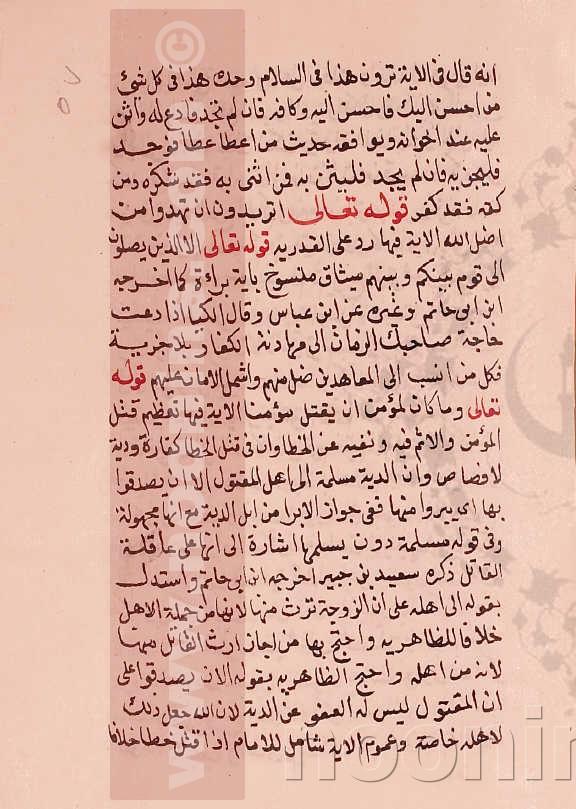 ٥٧
انه قال فى الاية ترون هذا فى السلام وحك هذا فى كل شئ
من احسن اليك فاحسن اليه وكافه فان لم تجد فادع له واثن
عليه عند اخوانه ويوافقه حديث من اعطا عطا فوجد
فليجز به فان لم يجد فليثن به فمن اثنى به فقد شكره ومن
كتمه فقد كفر قوله تعالى اتريدون ان تهدوا من
اضل الله الاية فيها رد على القدريه قوله تعالى الا الذين يصلون
الى قوم بينكم وبينهم ميثاق منسوخ باية براءة كما اخرجه
ابن ابى حاتم وغيره عن ابن عباس وقال الكيا اذا دعت
حاجة صاحبك الزمان الى مهادنة الكفار بلا جزية
فكل من انسب الى المعاهدين ضل منهم واشمل الامان عليهم قوله
تعالى وما كان لمؤمن ان يقتل مؤمنا الاية فيها تعظيم قتل
المؤمن والاثم فيه ونفيه عن الخطا وان فى قتل الخطا كفارة ودية
لا قصاص وان الدية مسلمة الى اهل المقتول الا ان يصدقوا
بها اى يبروا منها ففى جواز الابرا من ابل الدية مع انها مجهولة
وفى قوله مسلمة دون يسلمها اشارة الى انها على عاقلة
القاتل ذكره سعيد بن جبير اخرجه ابن ابى حاتم واستدل
بقوله الى اهله على ان الزوجة ترث منها لانها من جملة الاهل
خلافا للظاهريه واحتج بها من اجاز ارث القاتل منها
لانه من اهله واحتج الظاهريه بقوله الا ان يصدقوا على
ان المقتول ليس له العفو عن الدية لان الله جعل ذلك
لاهله خاصة وعموم الاية شامل للامام اذا قتل خطا خلافا
noorin